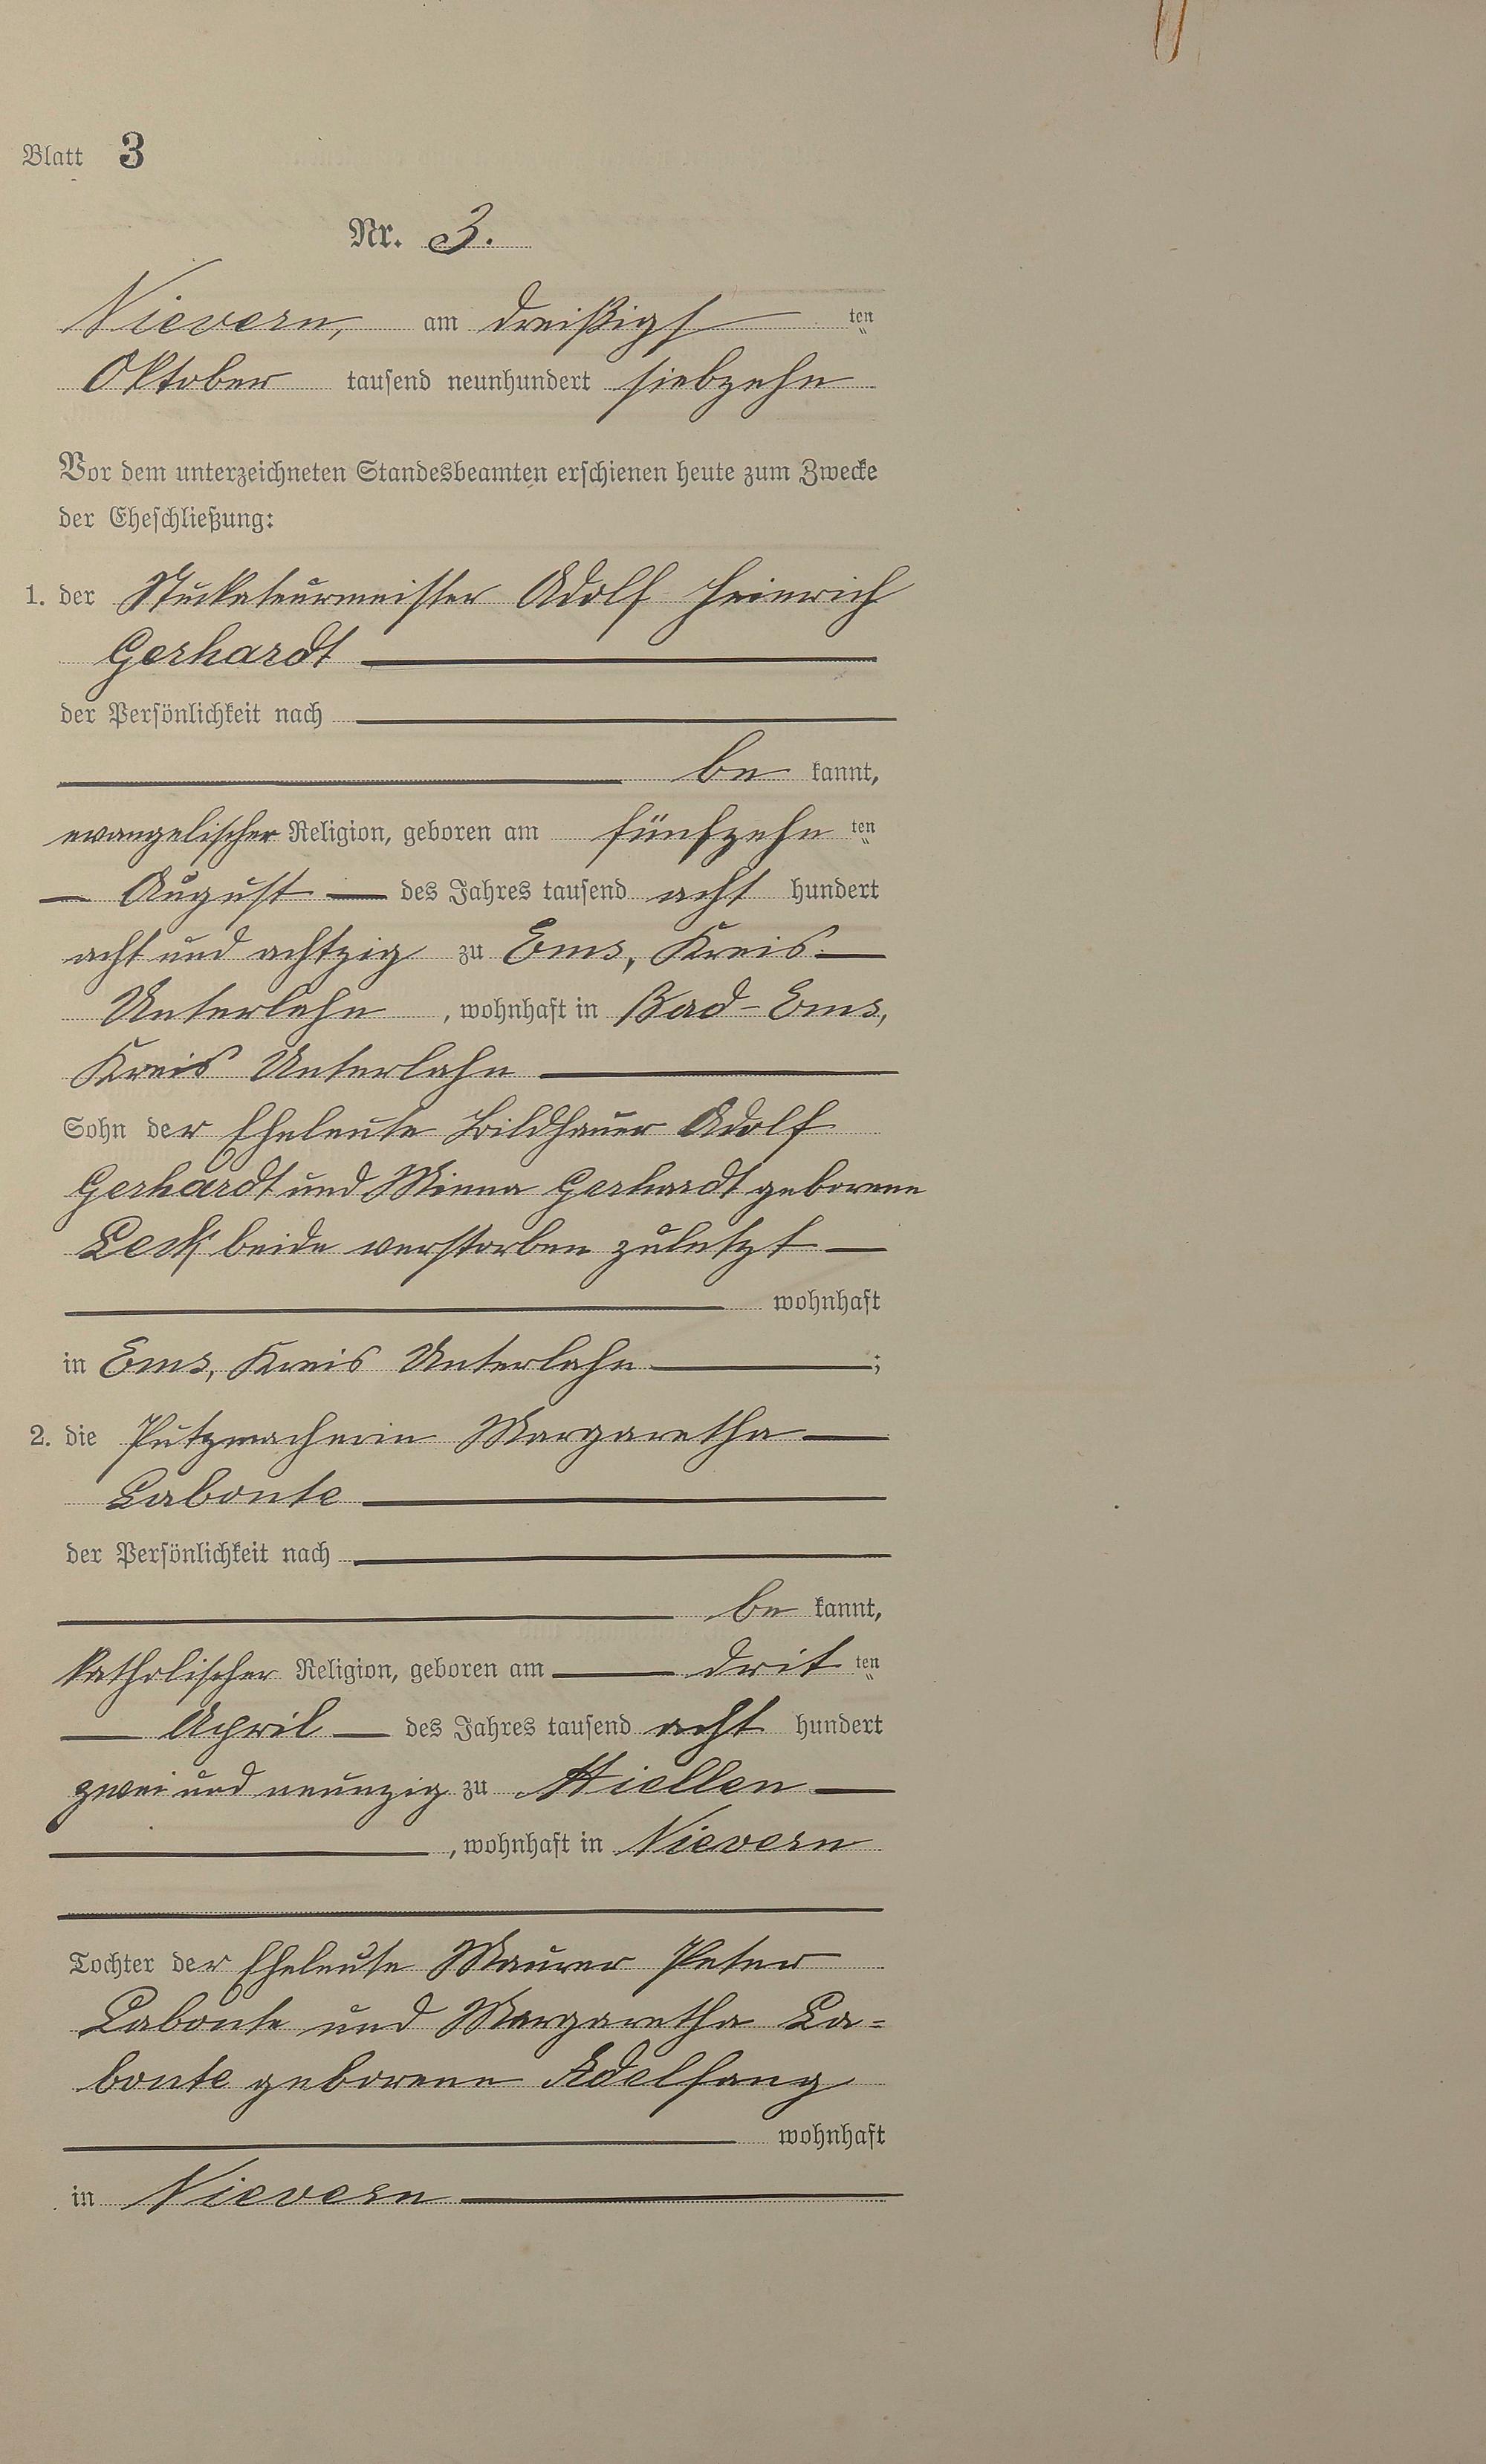 Blatt 3
Nr. 3.
Nievern, am dreißigs ten
Oktober tausend neunhundert siebzehn
Vor dem unterzeichneten Standesbeamten erschienen heute zum Zwecke
der Eheschließung:
1. der Stuckateurmeister Adolf Heinrich
Gerhardt
der Persönlichkeit nach
be kannt,
evangelischer Religion, geboren am fünfzehn ten
August des Jahres tausend acht hundert
acht und achtzig zu Ems, Kreis
Unterlahn, wohnhaft in Bad-Ems,
Kreis Unterlahn
Sohn der Eheleute Bildhauer Adolf
Gerhardt und Minna Gerhardt geborene
beide verstorben zuletzt
wohnhaft
in Ems, Kreis Unterlahn ;
2. die Putzmacherin Margaretha
Labonte
der Persönlichkeit nach
be kannt,
katholischer Religion, geboren am drit ten
April des Jahres tausend acht hundert
zwei und neunzig zu Miellen
, wohnhaft in Nievern
Tochter der Eheleute Maurer Peter
Labonte und Margaretha La=
bonte geborene Adelfang
wohnhaft
in Nievern